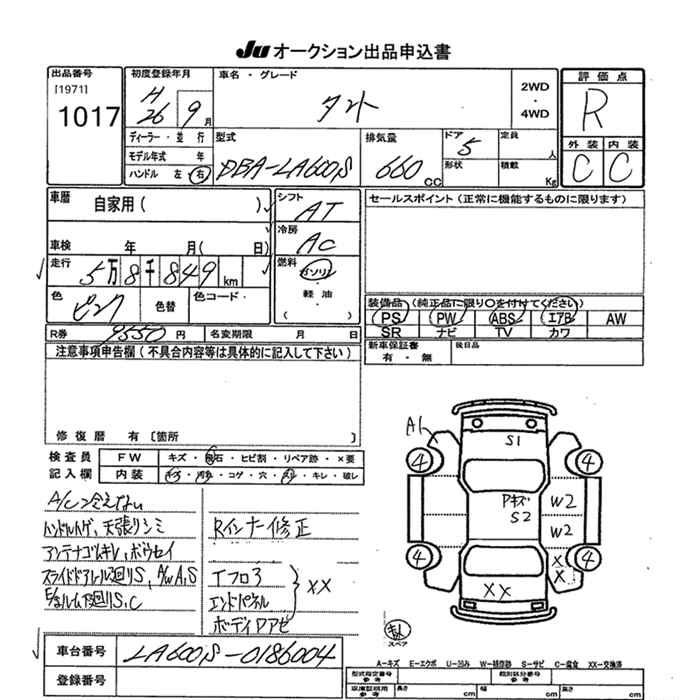 Ju オークション出品申込書
出品番号
[1971]
1017
初度登録年月
H 26 9月
車名・グレード
タント
2WD
・
4WD
評価点
R
外装 内装
C C
ディーラー・並行
モデル年式 年
ハンドル 左 右
型式
DBA-LA600S
排気量
660 CC
ドア
5
形状
定員
人
積載
Kg
車歴
自家用( )
車検 年 月( 日)
走行
5万8千849km
色
ピンク
色替
色コード
シフト
AT
冷房
AC
燃料
ガソリン
・
軽油
( )
セールスポイント(正常に機能するものに限ります)
装備品(純正品に限り〇を付けてください)
PS PW ABS エアB AW
SR ナビ TV カワ
R券 9550円 名変期限 月 日
新車保証書
有・無
後日品
注意事項申告欄(不具合内容等は具体的に記入して下さい)
修復歴 有 〔箇所
検査員
記入欄
FW キズ・飛石・ヒビ割・リペア跡・×要
内装 キズ・汚れ・コゲ・穴・スリ・キレ・破レ
A/C冷えない
ハンドルハゲ、天張りシミ
アンテナゴムキレ、ボウセイ
スライドドアレール廻りS、A/W A,S
S,C
Rインナー修正
Tフロア
エンドパネル
XX
A1
S1
4
4
Pキズ
S2
W2
W2
4
4
XX
XX
スペア
A-キズ E-エクボ U-凹み W-補修跡 S-サビ C-腐食 XX-交換済
車台番号
LA600S-0186004
登録番号
型式指定番号
参考
類別区分番号
参考
車庫証明用
参考
長さ cm 幅 cm 高さ cm